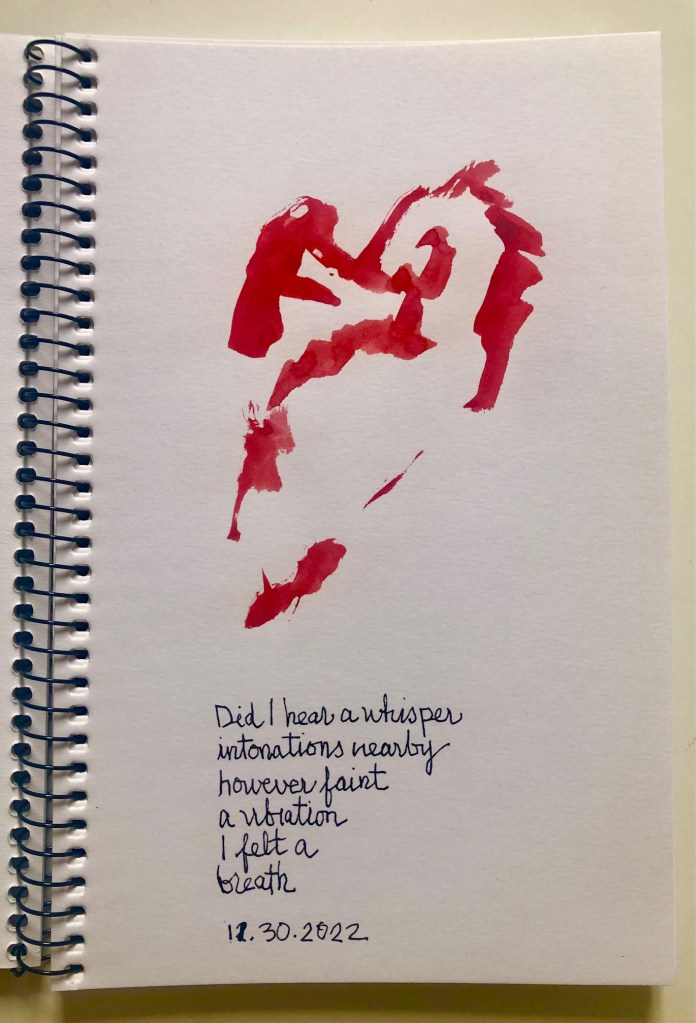 Did I hear a whisper
intonations nearby
however faint
a vibration
I felt a
breath
11.30.2022